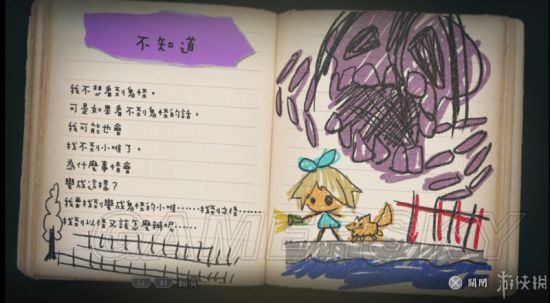 不知道
我不想看到鬼怪。
可是如果看不到鬼怪的話，
我可能也會
找不到小唯了。
為什麼事情會
變成這樣？
我要找到變成鬼怪的小唯……找到之後……
找到以後又該怎麼辦呢……
L1
R1
翻頁
關閉
GAMERSKY
游俠網